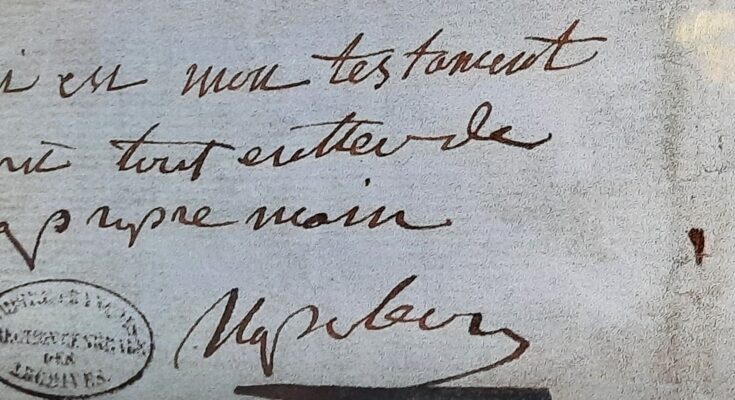 i est mon testament
rit tout entier de
a propre main
Napoleon
DES
ARCHIVES